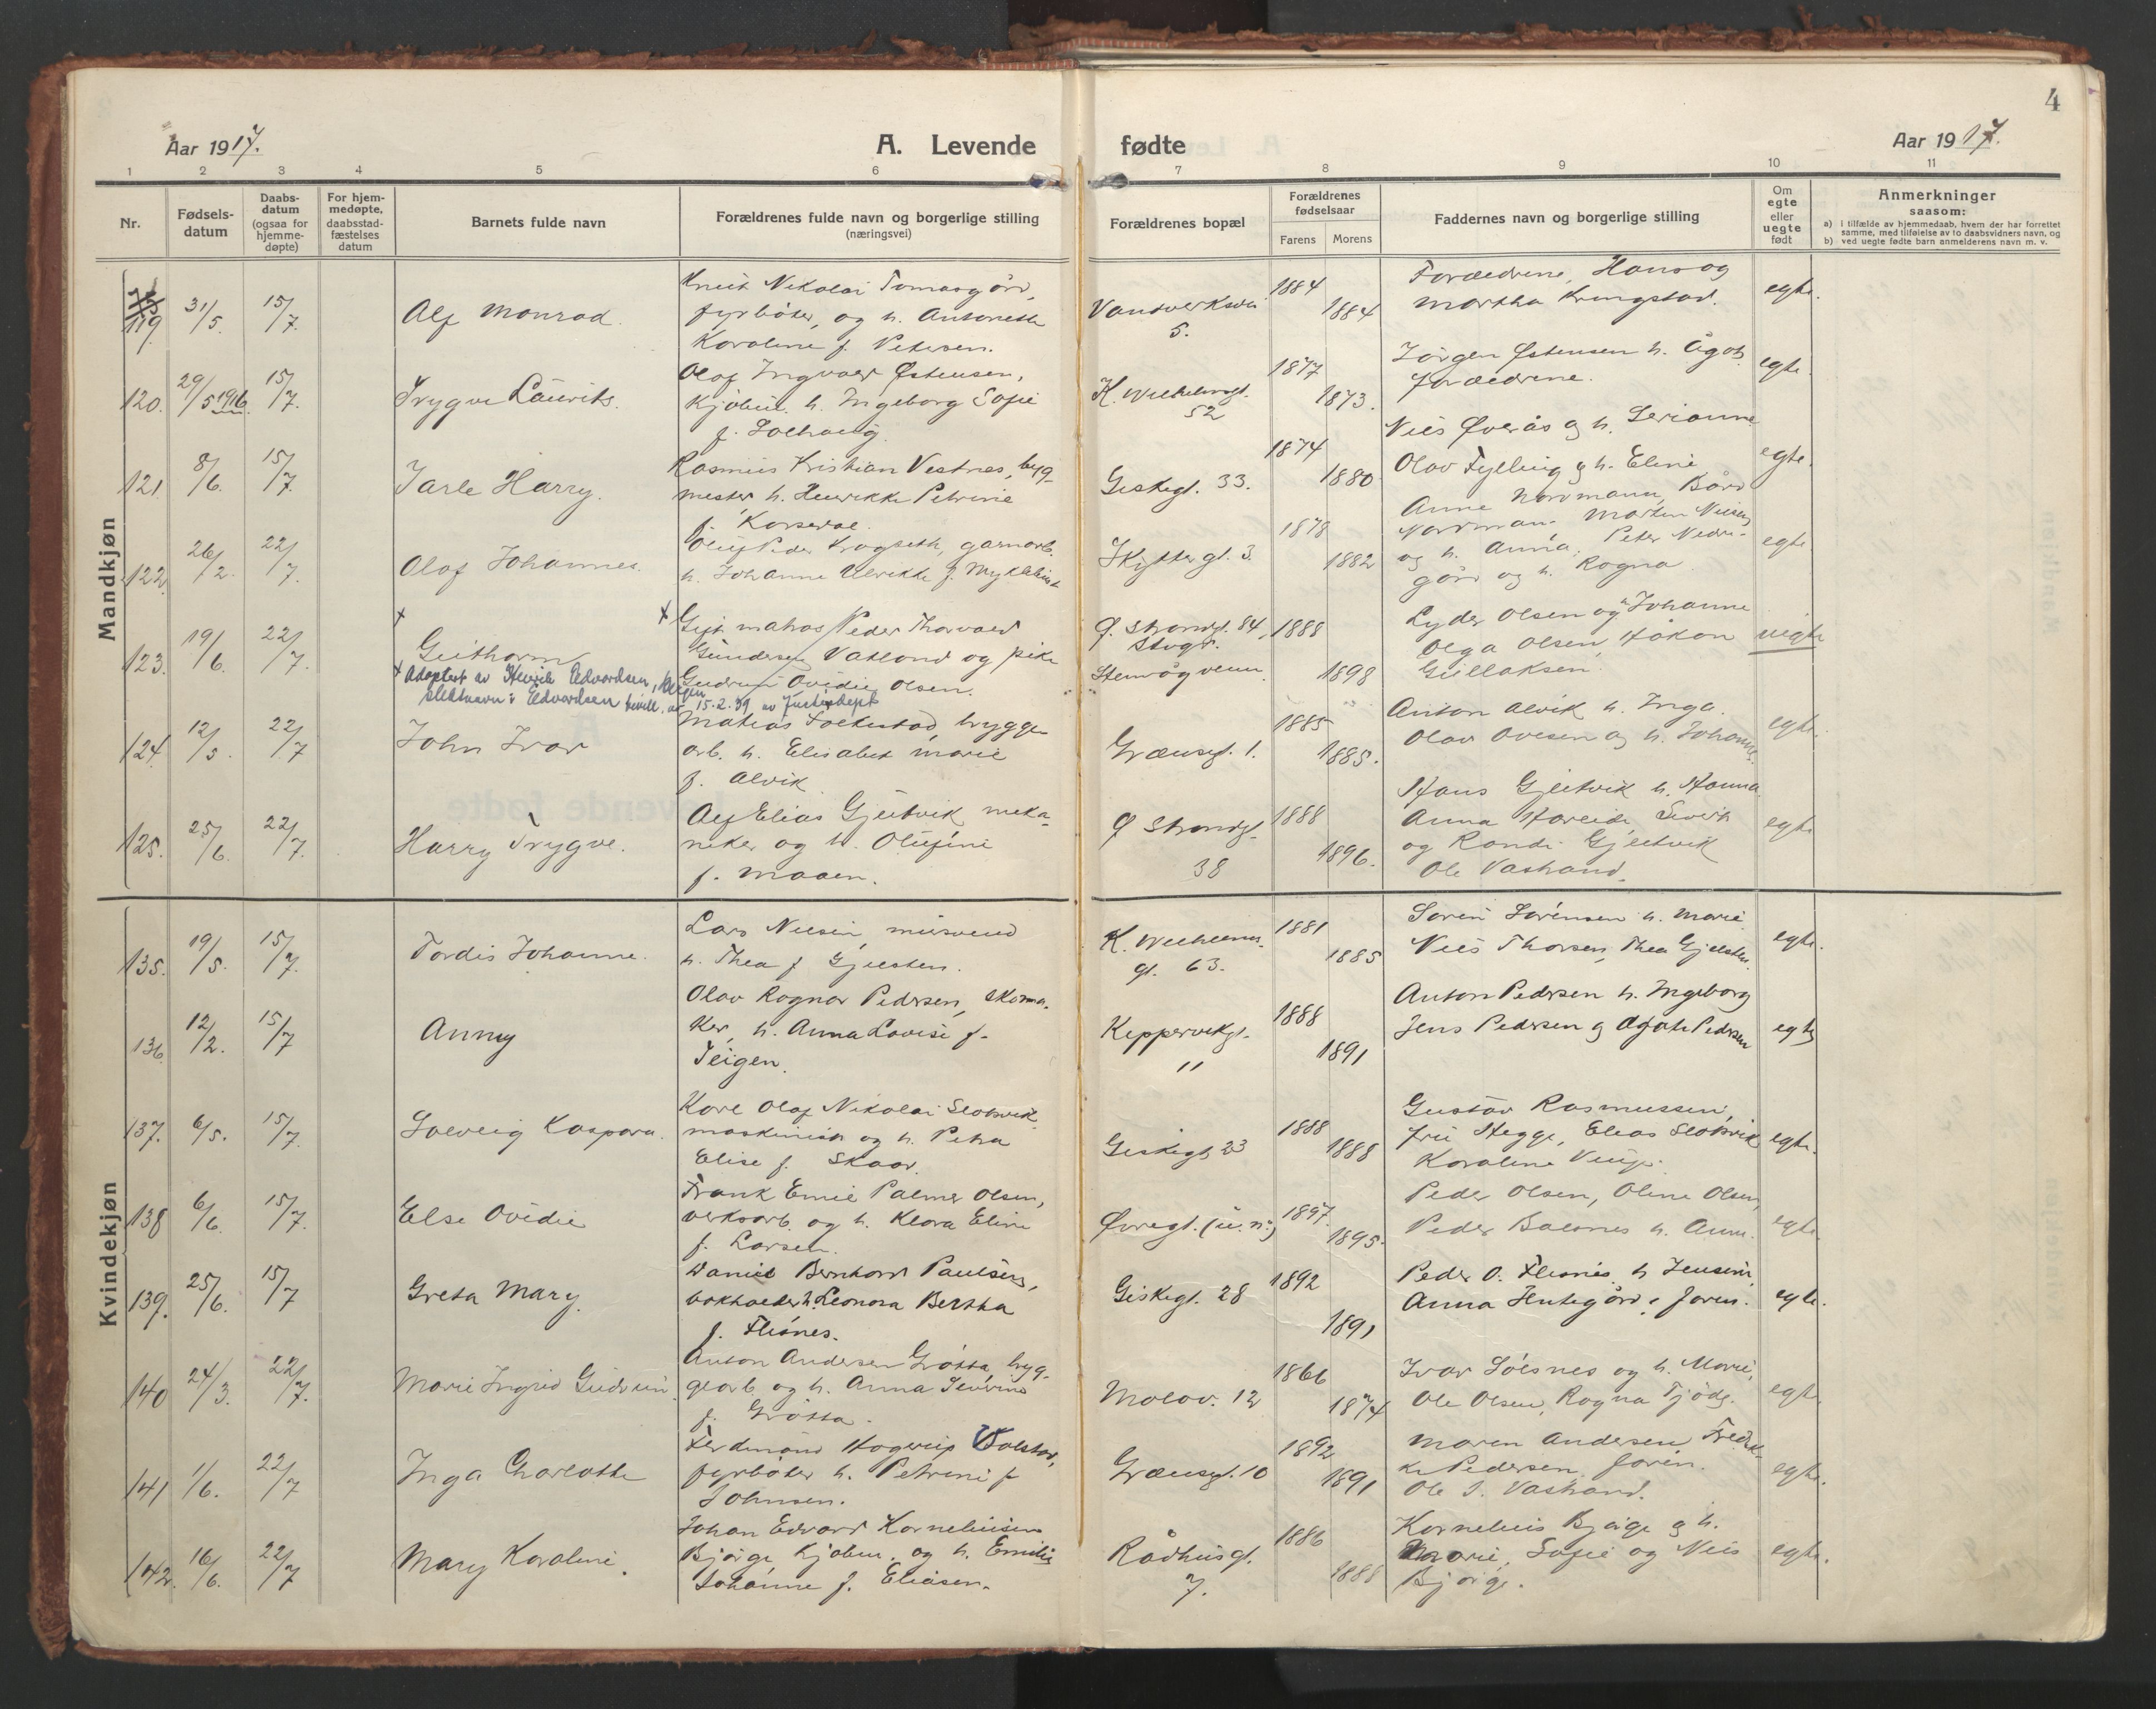 4
Aar 1917.
A. Levende fødte
Aar 1917.
1 2 3 4 5 6 7 8 9 10 11
Nr.
Fødsels-
datum
Daabs-
datum
(ogsaa for
hjemme-
døpte)
For hjem-
medøpte,
daabsstad-
fæstelses
datum
Barnets fulde navn
Forældrenes fulde navn og borgerlige stilling
(næringsvei)
Forældrenes bopæl
Forældrenes
fødselsaar
Farens Morens
Faddernes navn og borgerlige stilling
Om
egte
eller
uegte
født
Anmerkninger
saasom:
a) i tilfælde av hjemmedaab, hvem der har forrettet
samme, med tilføielse av to daabsvidners navn, og
b) ved uegte fødte barn anmelderens navn m. v.
Mandkjøn
119. 31/5. 15/7. Alf Monrad.
Knut Nikolai Tomasgård,
fyrbøter, og h. Antonette
Karoline f. Petersen.
5. 1884 1884
Forældrene, Hans og
Martha Kringstad.
egte.
120. 29/5 1916. 15/7. Trygve Laurits.
Olaf Ingvald Østensen,
Kjøbm. h. Ingeborg Sofie
f. Solhaug.
K. Wilhelmsgt.
52 1877 1873.
Jørgen Østensen h. Ågot
forældrene.
egte.
121. 8/6. 15/7. Jarle Harry.
Rasmus Kristian Vestnes, byg-
mester h. Henrikke Petrine
f. Korsedal.
Giskegt. 33. 1874 1880
Nils Øverås og h. Serianne
Olav Fylling og h. Eline
egte.
122. 26/2. 22/7. Olaf Johannes.
Oluf Peder Krogseth, garnarb.
h. Johanne Ulrikke f. Myklebust
Skyttergt. 3. 1878 1882
Anne Normann, Bård
Norman. Morten Nilsen
og h. Anna, Peter Nedre-
gård og h. Ragna.
egte.
123. 19/6. 22/7. Guthorm
Gift matros Peder Thorvald
Gundersen Vatland og pike
Gudrun Ovidie Olsen.
Ø. Strandgt. 84,
Stenvågveien. 1888 1898
Lyder Olsen og h. Johanne
Olga Olsen, Håkon
Gullaksen.
uegte
x Adoptert av Henrik Edvardsen, Bergen
slektsnavn: Edvardsen bevill. av 15.2.39 av Justisdept
124. 12/5. 22/7 John Ivar
Matias Solkestad, brygge
arb. h. Elisabet Marie
f. Alvik.
Grænsegt. 1. 1885 1885.
Anton Alvik h. Inga.
Olav Ovesen og h. Johanne.
egte.
125. 25/6. 22/7. Harry Trygve.
Alf Elias Gjeitvik, meka-
niker og h. Olufine
f. Maaen.
Ø Strandgt.
38 1888 1896.
Hans Gjeitvik h. Hanna.
Anna Hareide, Sivert
og Randi Gjeitvik
Ole Vastrand.
egte
Kvindekjøn
135. 19/5. 15/7. Tordis Johanne.
Lars Nilsen, mursvend
h. Thea f Gjelsten.
K. Wilhelms.
gt. 63. 1881 1885
Søren Sørensen h. Marie
Nils Thorsen, Thea Gjelsten.
egte.
136. 12/2. 15/7 Anny
Olav Ragnar Pedersen, skoma-
ker, h. Anna Lovise f.
Teigen.
Keppervikgt.
11 1888 1891
Anton Pedersen h. Ingeborg
Jens Pedersen og Agate Pedersen
egte
137. 6/5. 15/7. Solveig Kaspara.
Karl Olaf Nikolai Slotsvik
maskinist og h. Petra
Elise f. Skaar.
Giskegt 23 1888 1888
Gustav Rasmussen,
fru Hegge, Elias Slotsvik
Karoline
egte.
138 6/6. 15/7. Else Ovidie
Frank Emil Palmer Olsen,
verksarb. og h. Klara Eline
f. Larsen.
Øvregt. (u. n:) 1897. 1895.
Peder Olsen, Oline Olsen,
Peder Balsnes h. Anna.
egte.
139. 25/6. 15/7 Greta Mary.
Daniel Bernhard Paulsen,
bokholder h. Leonora Bertha
f. Flisnes.
Giskegt. 28 1892 1891
Peder O. Flisnes h. Jensine,
Anna Hutegård, foren.
egte.
140 24/3. 22/7. Marie Ingrid Gudrun
Anton Andersen Grøtta, bryg-
gearb. og h. Anna Severine
f. Grøtta.
Molov. 12 1866 1874
Ivar Solsnes og h. Marie,
Ole Olsen, Ragna Tjøde.
egte.
141 1/6. 22/7 Inga Charlotte
Ferdinand Hagerup Volstad,
fyrbøter h. Petrine f
Johnsen.
Grænsegt. 10 1892 1891
Maren Andersen, Fredrik-
ke Pedersen. foren.
Ole J. Vastrand.
egte.
142. 16/6. 22/7 Mary Karoline.
Johan Edvard Korneliussen
Bjørge, kjøbm. og h. Emilie
Johanne f. Eliasen.
Rådhusgt.
7. 1886 1888
Kornelius Bjørge og h.
Marie, Sofie og Nils
Bjørge.
egte.